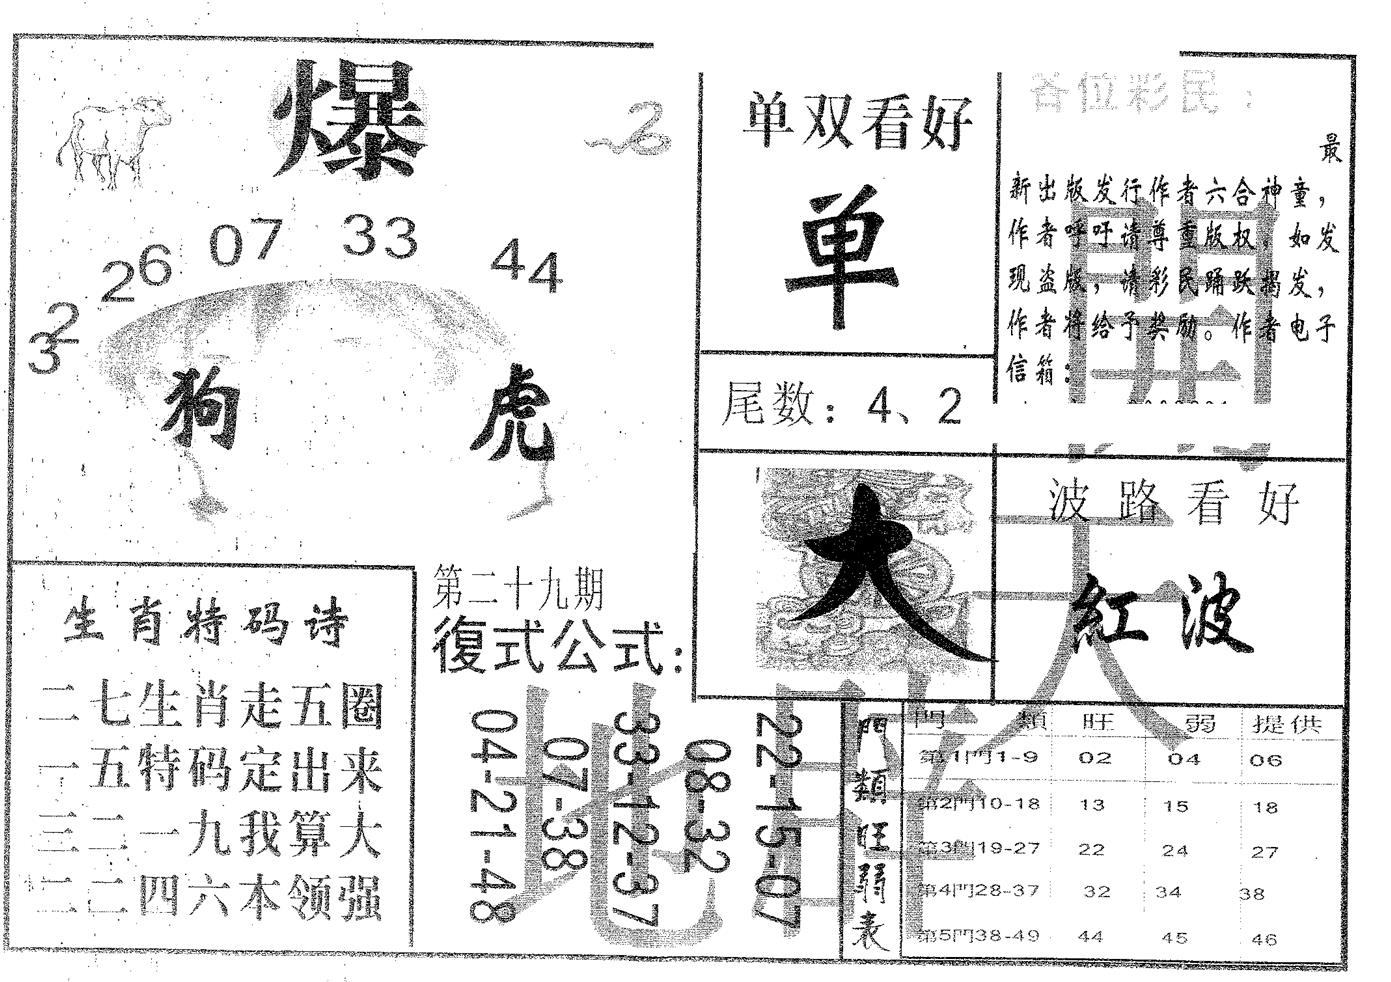 爆
2
32
26
07
33
44
狗
虎
单双看好
单
尾数：4、2
各位彩民：
最
新出版发行作者六合神童，
作者呼吁请尊重版权。如发
现盗版，请彩民踊跃揭发，
作者将给予奖励。作者电子
信箱：
大
波路看好
紅波
生肖特码诗
二七生肖走五圈
一五特码定出来
三二一九我算大
二二四六本领强
第二十九期
復式公式：
04-21-48
07-38
33-12-37
08-32
22-15-07
門類旺弱表
門類 旺 弱 提供
第1門1-9 02 04 06
第2門10-18 13 15 18
第3門19-27 22 24 27
第4門28-37 32 34 38
第5門38-49 44 45 46